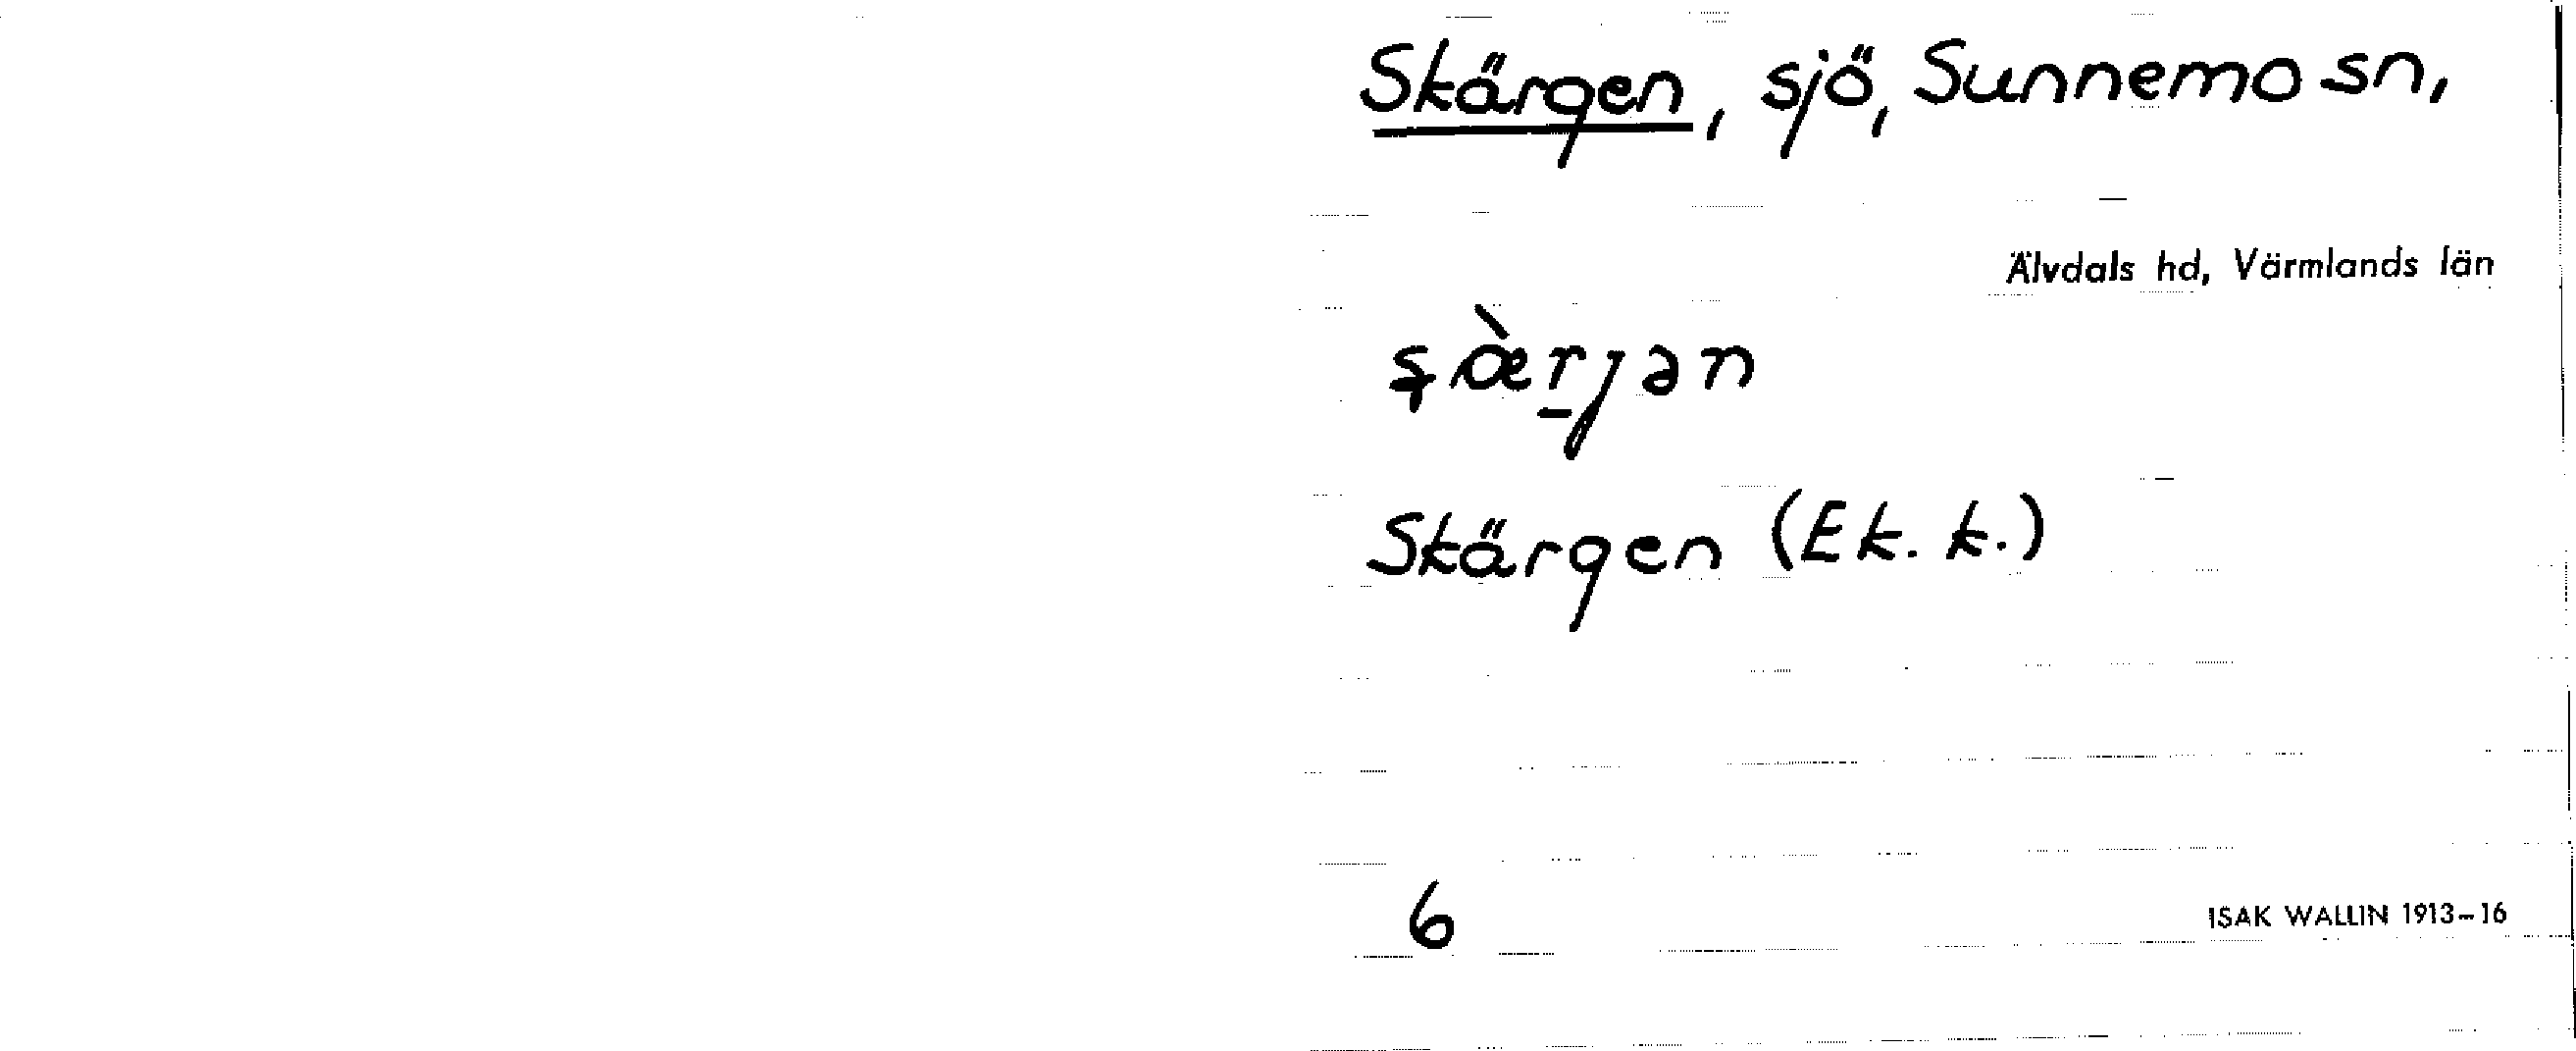 Skärgen, sjö, Sunnemo sn,
Älvdals hd, Värmlands län
Skärgen (Ek. k.)
6
ISAK WALLIN 1913-16